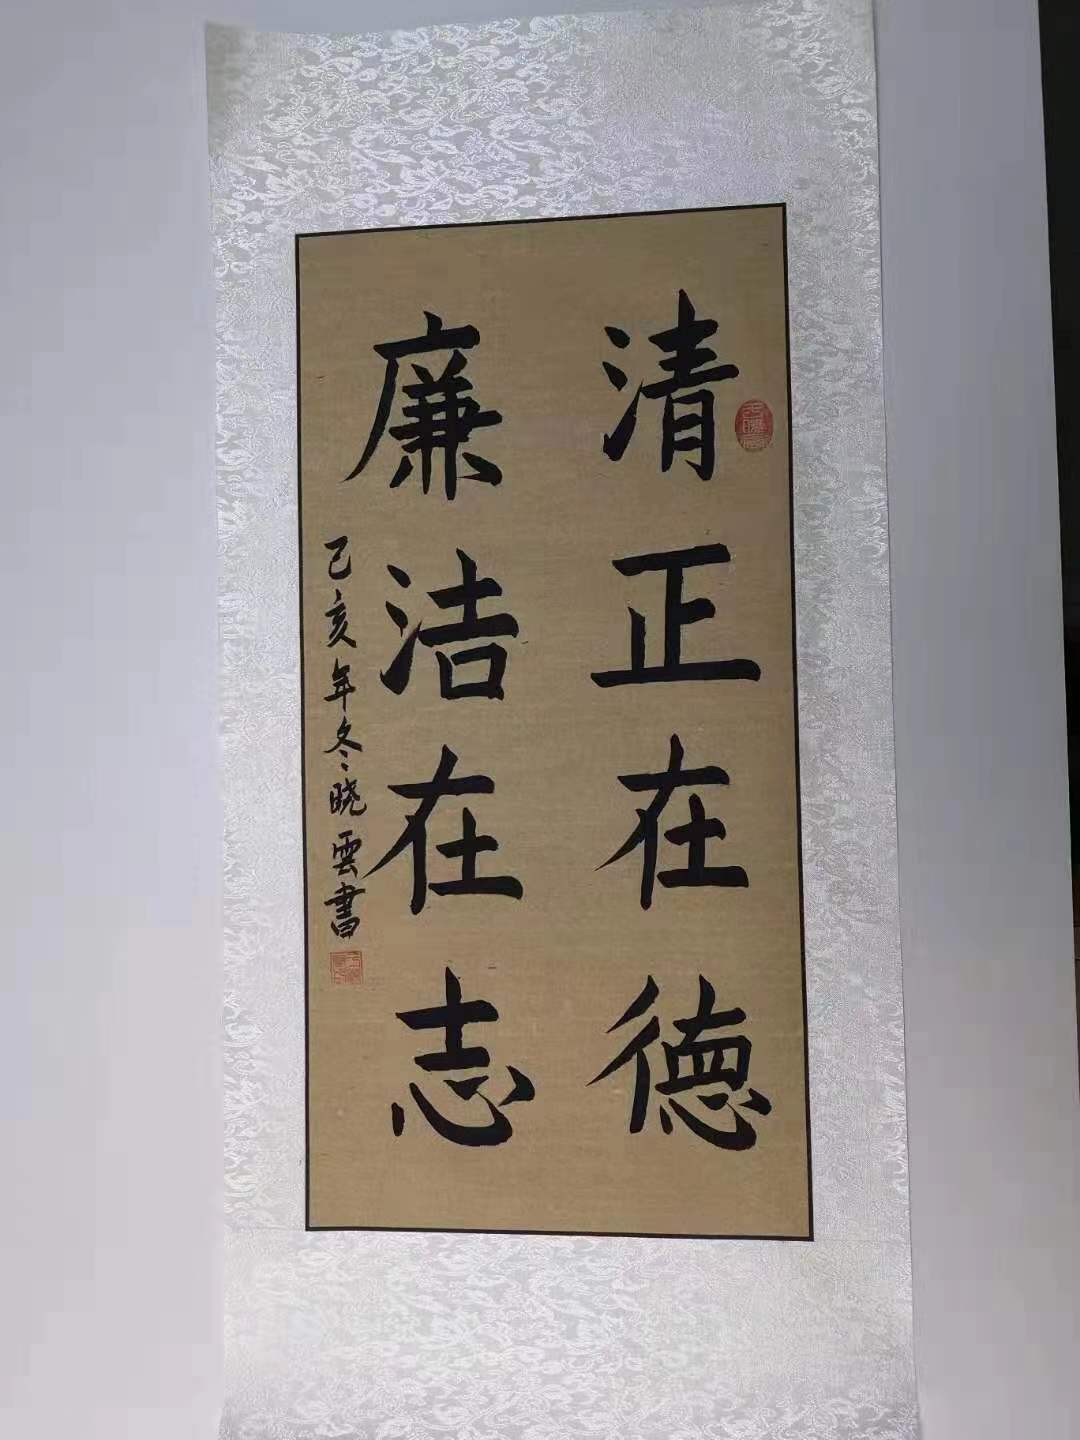 清正在德
廉洁在志
己亥年冬晓雲書